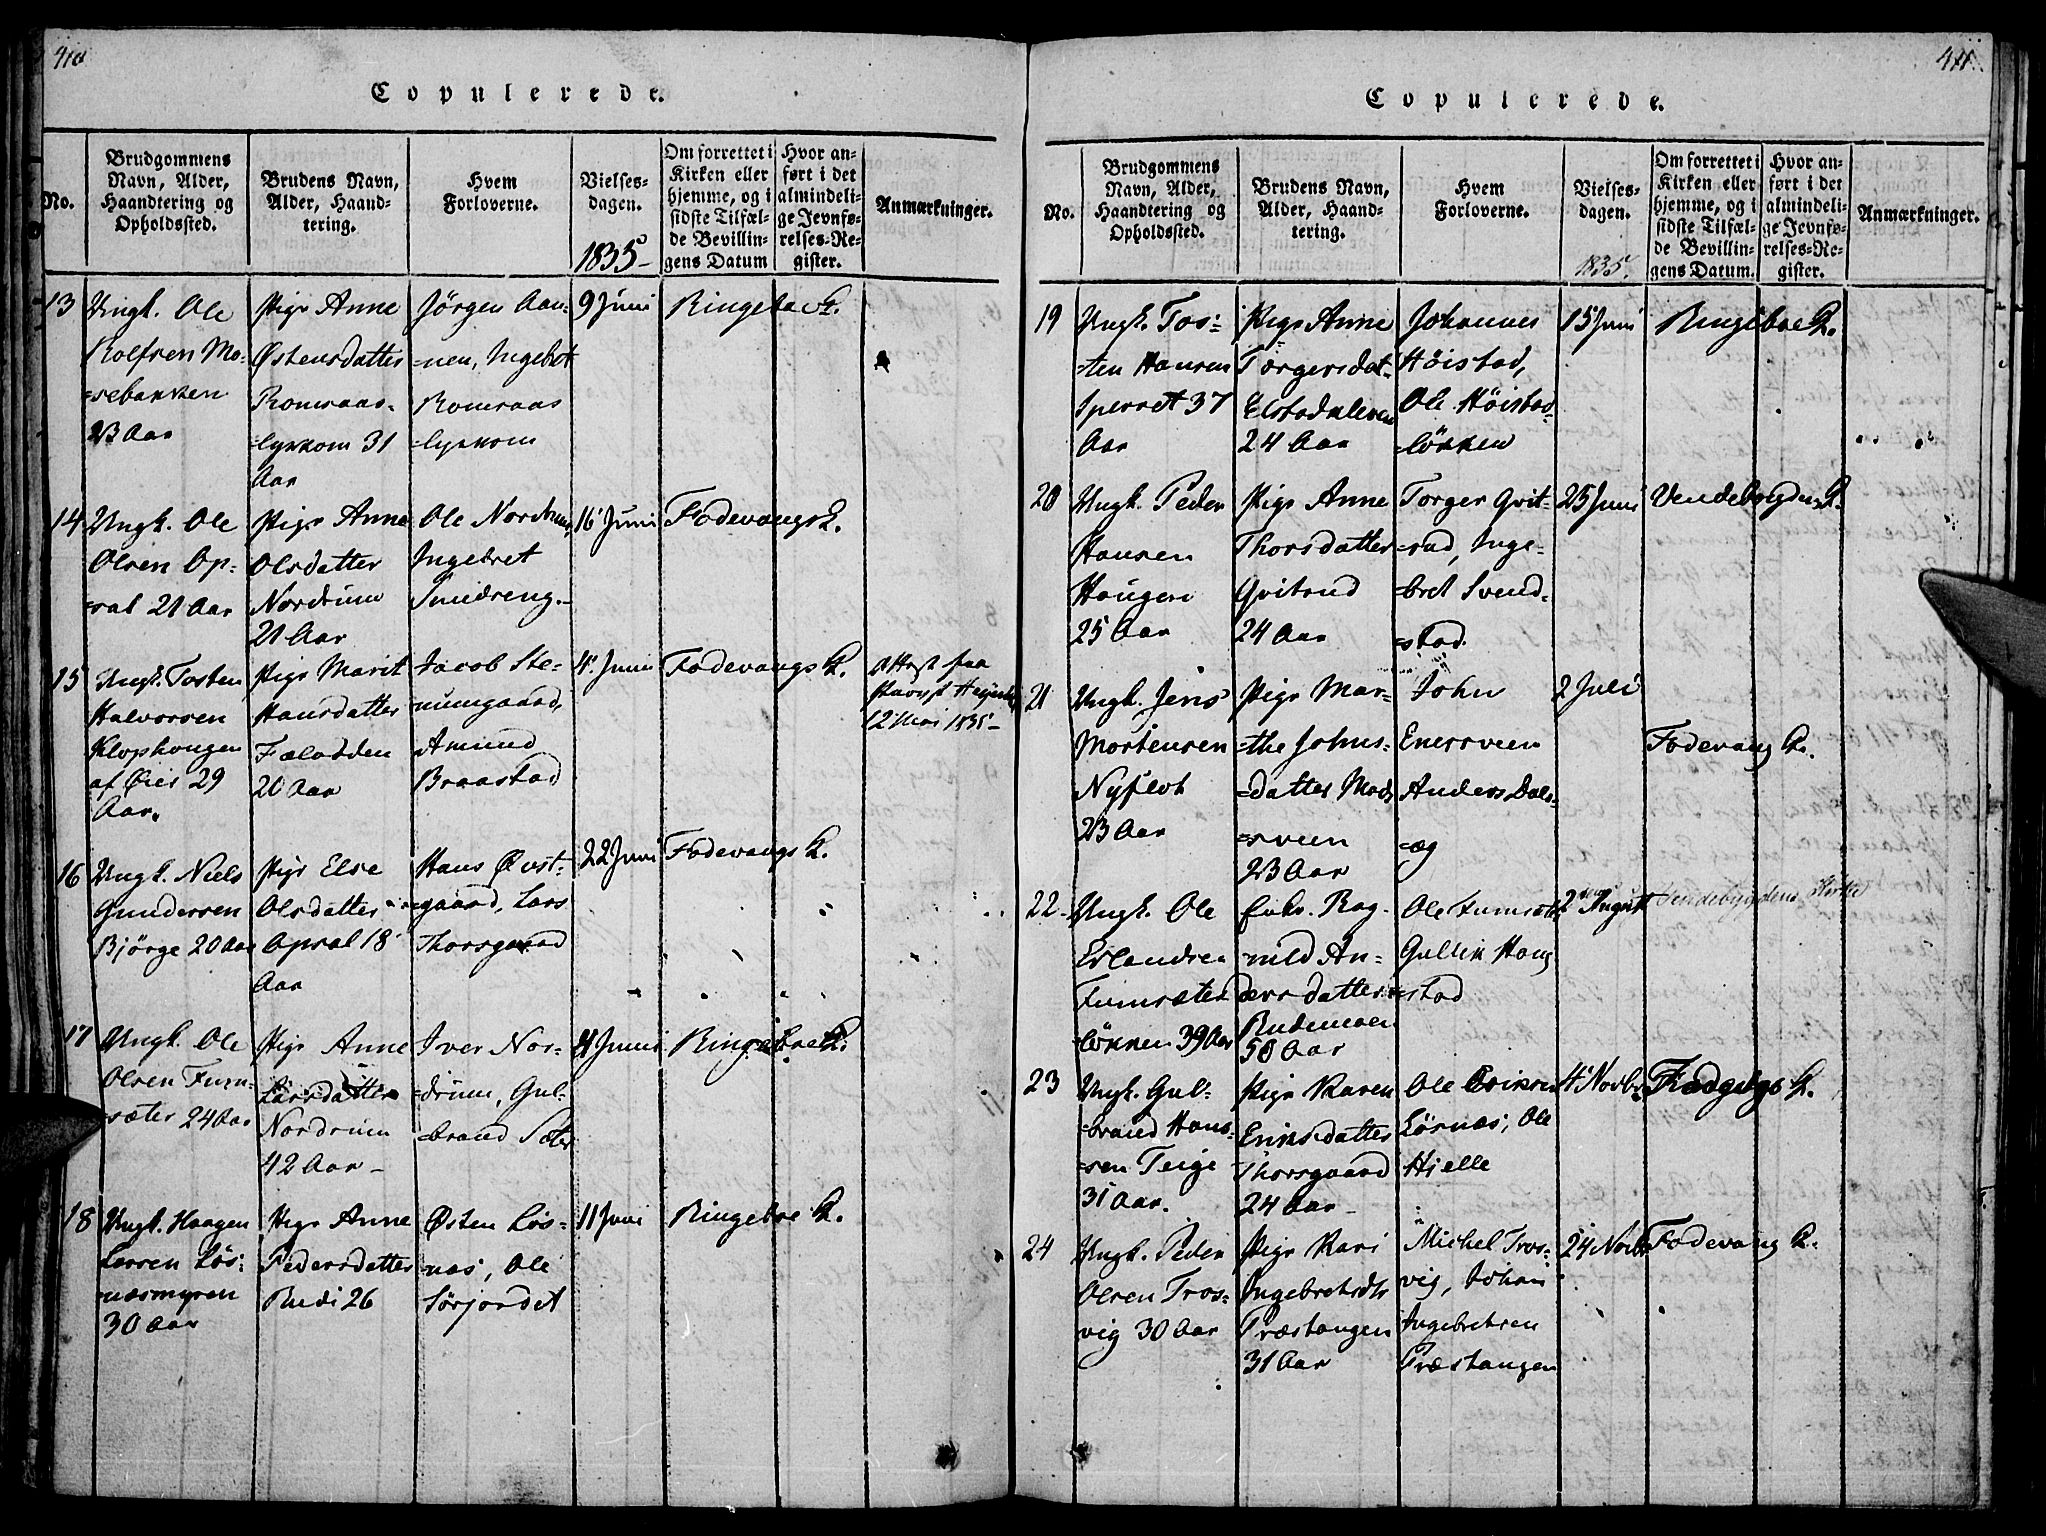 410
Copulerede.
No.
Brudgommens
Navn, Alder,
Haandtering og
Opholdssted.
Brudens Navn,
Alder, Haand-
tering.
Hvem
Forloverne.
Vielses-
dagen.
1835
Om forrettet i
Kirken eller
hjemme, og i
sidste Tilfæl-
de Bevillin-
gens Datum
Hvor an-
ført i det
almindeli-
ge Jevnfø-
relses-Re-
gister.
Anmærkninger.
13
Ungk. Ole
Rolfsen Mo-
=sebakken
23 Aar
Pige Anne
Østensdatter
Romsaas-
=lyekom 31
Aar
Jörgen Aan-
=nen, Ingebret
Romsaas
=lyekom
9 Juni
Ringeboe K.
14
Ungk. Ole
Olsen Op-
=sal 21 Aar
Pige Anne
Olsdatter
Nordrum
21 Aar
Ole Nordrum,
Ingebret
Smidseng.
16 Juni
Fodevangs K.
15
Ungk. Tosten
Halvorsen
Klophougen
af Øier 29
Aar.
Pige Marit
Hansdatter
Fælodden
20 Aar
Jacob Ste-
numgaard,
Amund
Braastad
4. Juni
Fodevangs K.
Attest fra
12 Mai 1835
16
Ungk. Niels
Gundersen
Bjørge 20 Aar
Pige Else
Olsdatter
Opsal 18
Aar
Hans Øvst-
gaard, Lars
Thorsgaard
22 Juni
Fodevangs K.
17
Ungk. Ole
Olsen Fum-
=sæter 24 Aar
Pige Anne
Larsdatter
Nordrum
42 Aar
Iver Nor-
=drum, Gul-
=brand Sæter
11 Juni
Ringeboe K.
18
Ungk. Haagen
Larsen Løs-
næsmyren
30 Aar
Pige Anne
Pedersdatter
Rudi 26
Østen Løs-
næs, Ole
Sörjordet
11 Juni
Ringeboe K.
411.
Copulerede.
No.
Brudgommens
Navn, Alder,
Haandtering og
Opholdssted.
Brudens Navn,
Alder, Haand-
tering.
Hvem
Forloverne.
Vielses-
dagen.
1835.
Om forrettet i
Kirken eller
hjemme, og i
sidste Tilfæl-
de Bevillin-
gens Datum.
Hvor an-
ført i det
almindeli-
ge Jevnfø-
relses-Re-
gister.
Anmærkninger.
19
Ungk. Tos-
=ten Hansen
Sperret 37
Aar
Pige Anne
Torgersdat-
Elstadkleven
24 Aar
Johannes
Höistad,
Ole Höistad-
=lökken
15 Juni
Ringeboe K.
20
Ungk. Peder
Hansen
Haugen
25 Aar
Pige Anne
Thorsdatter
Qvitrud
24 Aar
Torger Qvit-
=rud, Inge-
=bret Svend-
=stad.
25 Juni
Vendebygdens K.
21
Ungk. Jens
Mortensen
Nyfløt
23 Aar
Pige Mar-
=the Johns-
=datter Mads
=sveen
23 Aar
John
Enersveen
Anders Dals-
=æg
2 Juli
Fodevang K.
22
Ungk. Ole
Erlandsen
Fumsæter
lökken 39 Aar
Enke. Rag-
=nild An-
ders datter
Rudemoen
50 Aar
Ole Fumsæter
Gullik Haug
=stad
2den August
Vendebygdens Kirke
23
Ungk. Gul-
=brand Hans-
=sen Teige
31 Aar.
Pige Karen
Eriksdatter
Thorsgaard
24 Aar
Ole Eriksen
Lörnæs, Ole
Hjelle
4 Novbr
24
Ungk. Peder
Olsen Tros-
vig 30 Aar
Pige Kari
Ingebretsdtr
Træstangen
31 Aar
Michel Tros-
vig, Johan
Ingebretsen
Træstangen
24 Novbr
Fodevang K.